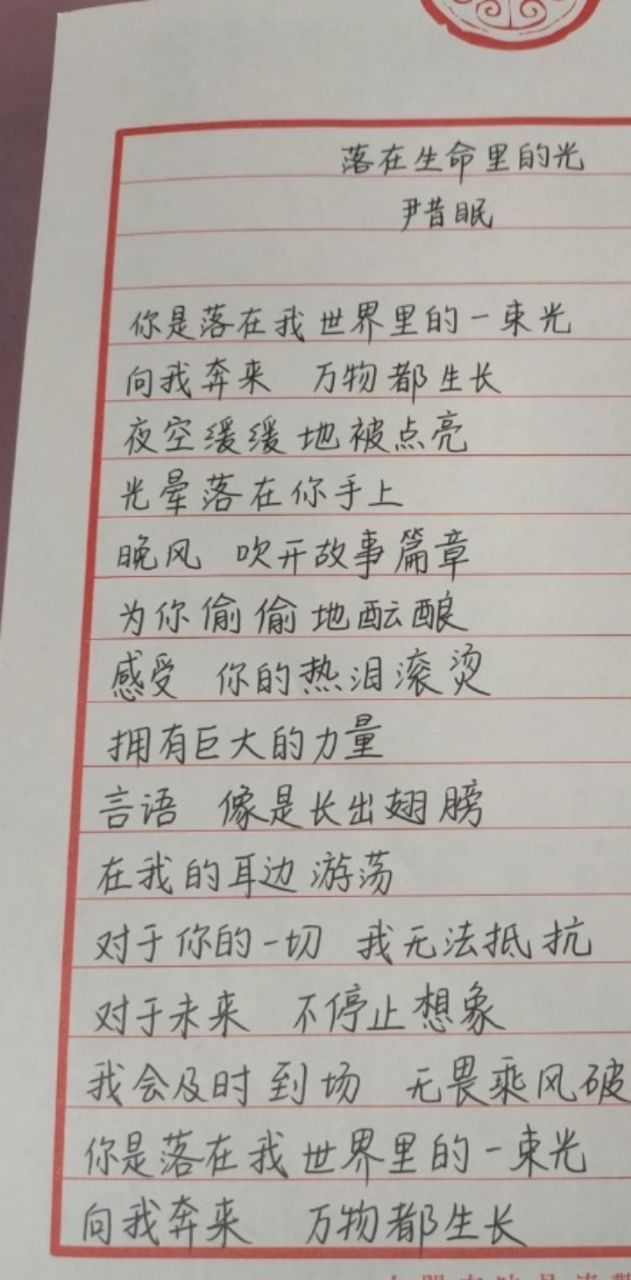 落在生命里的光
尹昔眠
你是落在我世界里的一束光
向我奔来 万物都生长
夜空缓缓地被点亮
光晕落在你手上
晚风 吹开故事篇章
为你偷偷地酝酿
感受 你的热泪滚烫
拥有巨大的力量
言语 像是长出翅膀
在我的耳边游荡
对于你的一切 我无法抵抗
对于未来 不停止想象
我会及时到场 无畏乘风破
你是落在我世界里的一束光
向我奔来 万物都生长